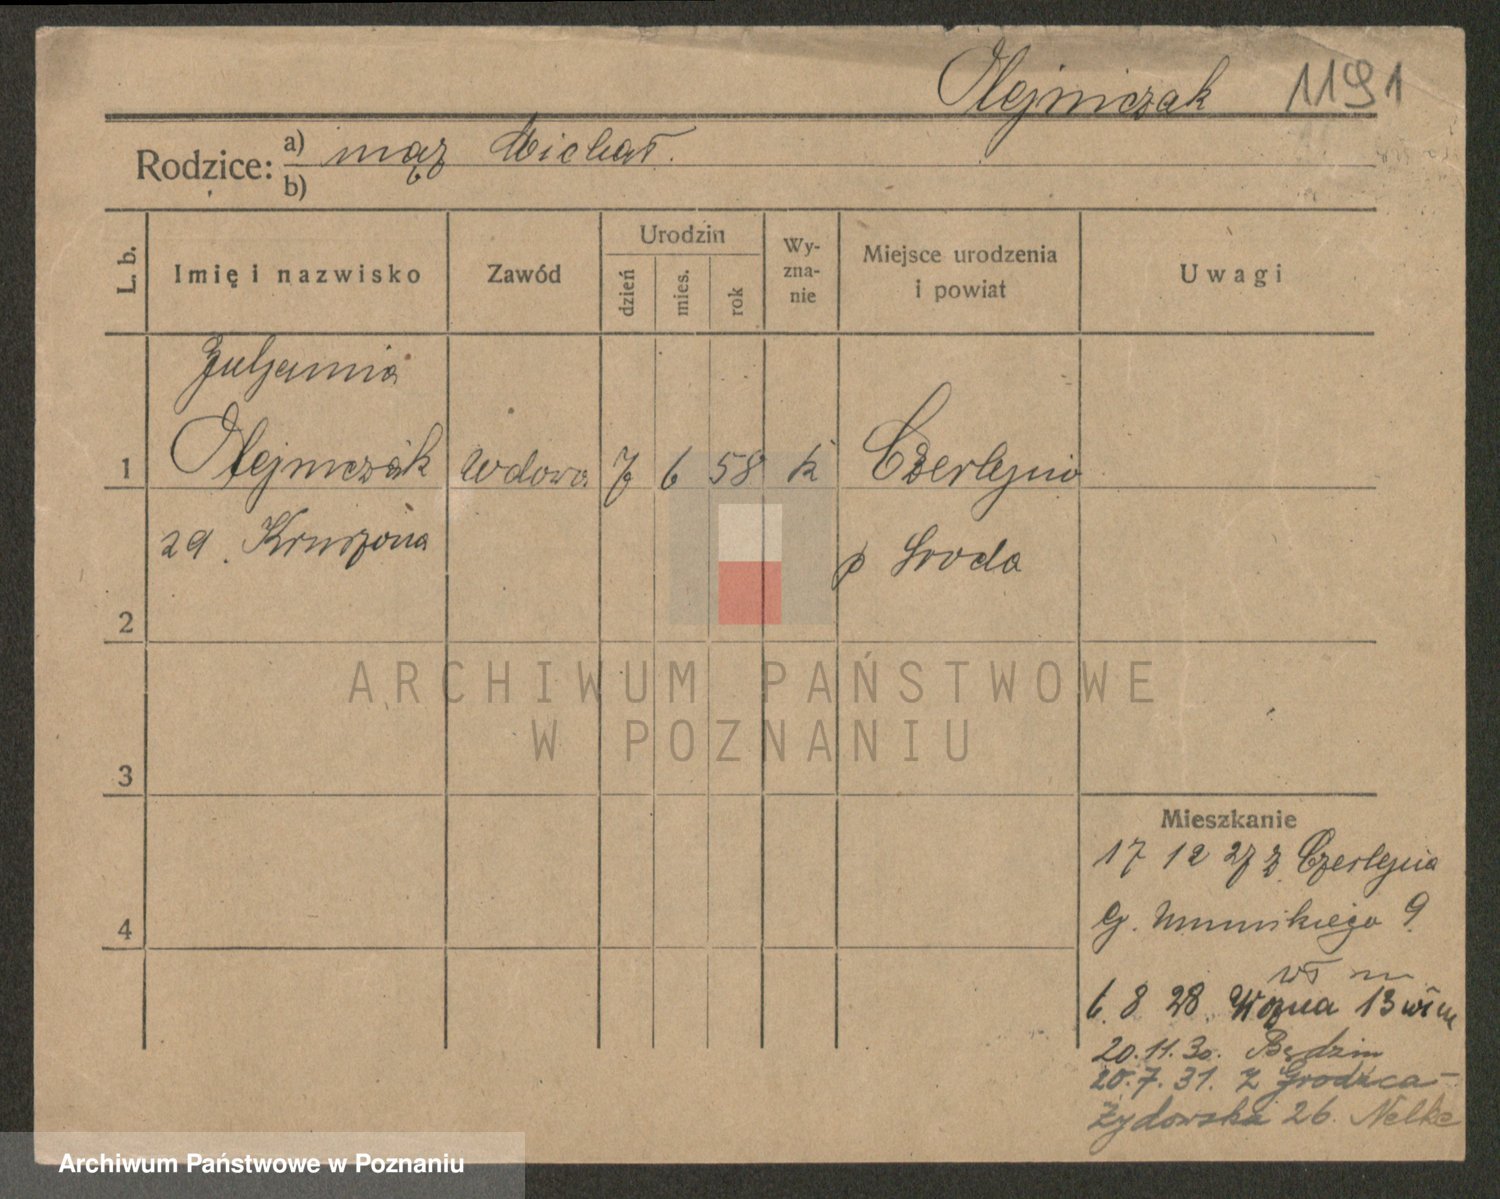 Olejniczak 1191
Rodzice: a) mąż Michał.
b)
L. b.
Imię i nazwisko
Zawód
Urodzin
dzień
mies.
rok
Wy-
zna-
nie
Miejsce urodzenia
i powiat
Uwagi
Juljanna
1 Olejniczak wdowa 7 6 58 k Czerlejno
zd.
p Środa
2
3
4
Mieszkanie
17 12 27 z Czerlejna
G. 9
wł m
6. 8 28 Woźna 13 wł m
20.11.30. Będzin
20.7.31. z Grodźca-
Żydowska 26. Nelke
ARCHIWUM PAŃSTWOWE
W POZNANIU
Archiwum Państwowe w Poznaniu